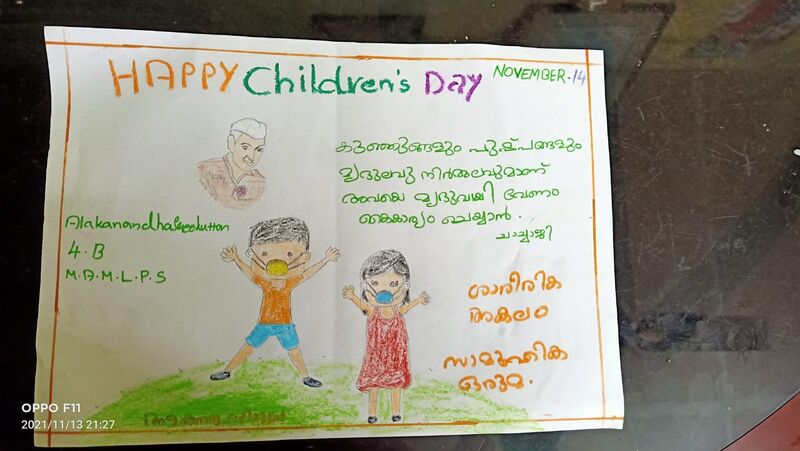 HAPPY Children's DAY
NOVEMBER-14
കുഞ്ഞുങ്ങളും പുഷ്പങ്ങളും
മൃദുലവു നിർമ്മലവുമാണ്
അവയെ മൃദുവായി വേണം
കൈകാര്യം ചെയ്യാൻ.
ചാച്ചാജി
AlakanandhaSreekuttan
4.B
M.A.M.L.P.S
ശാരീരിക
അകലം
സാമൂഹിക
ഒരുമ.
OPPO F11
2021/11/13 21:27